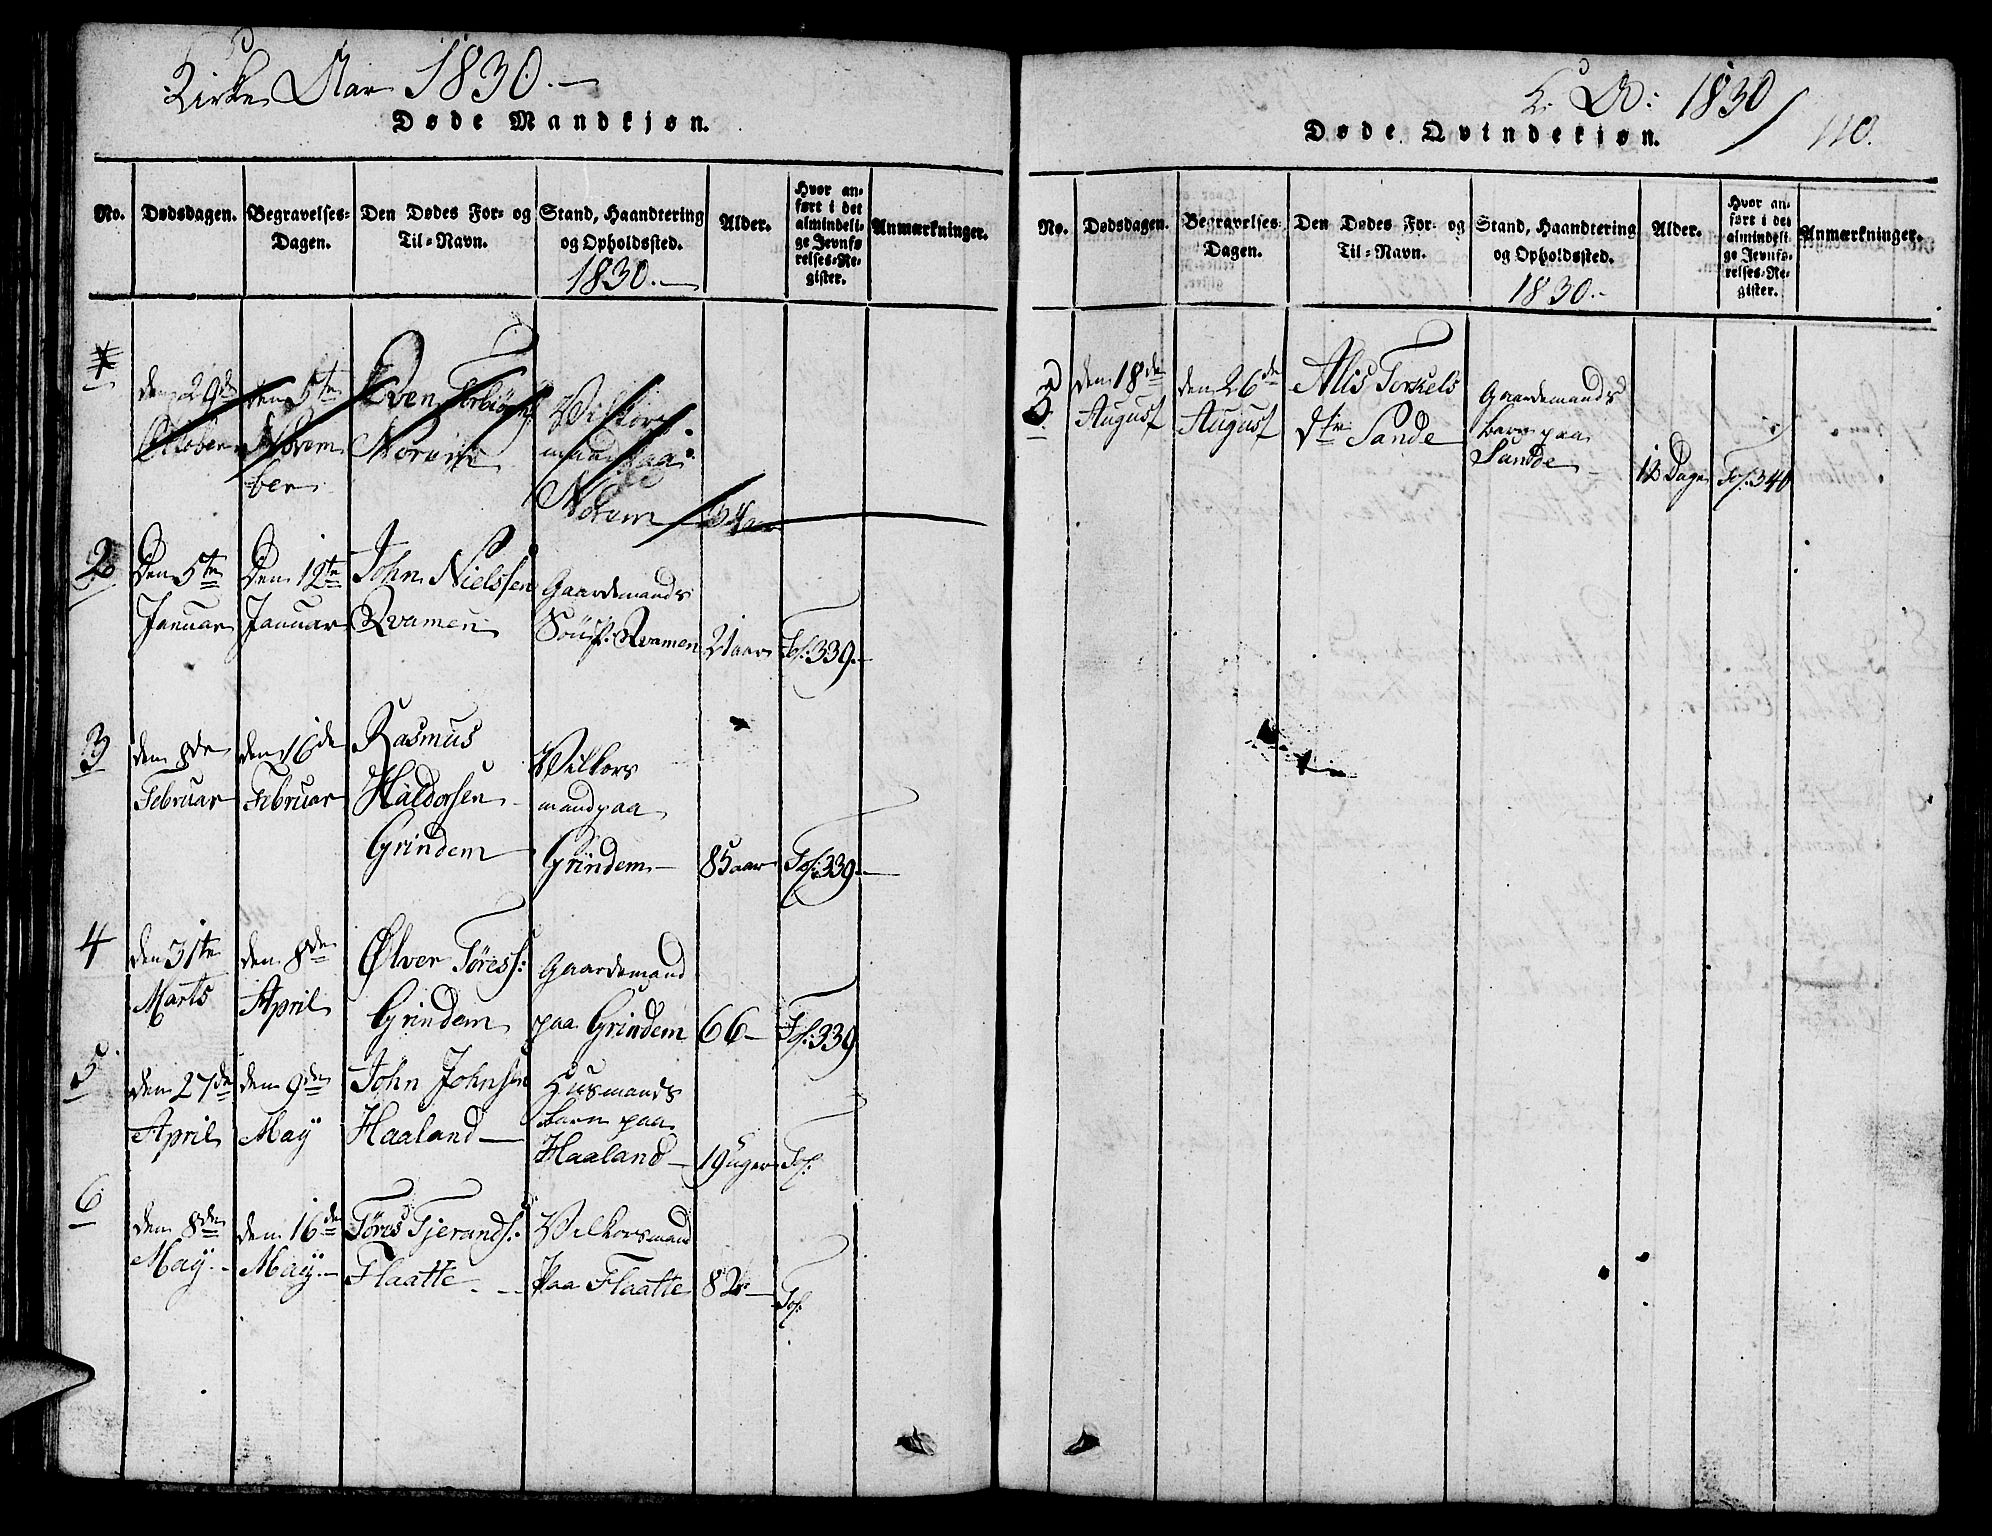 Kirke Aar 1830.
Døde Mandkjøn.
No.
Dødsdagen.
Begravelses-
Dagen.
Den Dødes For- og
Til-Navn.
Stand, Haandtering
og Opholdssted.
1830.
Alder.
Hvor an-
ført i det
almindeli-
ge Jevnfø
relses-Re-
gister.
Anmærkninger.
1
den 29de
Oktober
den 5te
Novem
ber
Sven Torbiørns
Norum
Vilkors
mand paa
Norum
2
Den 5te
Januar
Den 12te
Januar
John Nielssen
Qvamen
Gaardemands
Søn p. Qvamen
21 aar
Fol. 339.
3
den 8de
Februar
den 16de
Februar
Rasmus
Haldorsen
Grindem
Vilkors
mand paa
Grindem
85 aar
Fol. 339.
4
den 31te
Marts
den 8de
April
Ølver Tøress:
Grindem
Gaardemand
paa Grindem
66
Fol. 339
5
den 27de
April
den 9de
May
John Johnsen
Haaland
Husmands
barn paa
Haaland
19 uger
Fol.
6
den 8de
May.
den 16de
May.
Tøres Tjerands:
Flaatte
Vilkorsmand
paa Flaatte
82
Fol.
K. A: 1830
110.
Døde Qvindekjøn.
No.
Dødsdagen.
Begravelses-
Dagen.
Den Dødes For- og
Til-Navn.
Stand, Haandtering
og Opholdssted.
1830.
Alder.
Hvor an-
ført i det
almindeli-
ge Jevnfø-
relses-Re-
gister.
Anmærkninger.
den 18de
August
den 26de
August
Alis Torkels
dtr Sande
Gaardemands
barn paa
Sande
12 Dage
Fol. 340